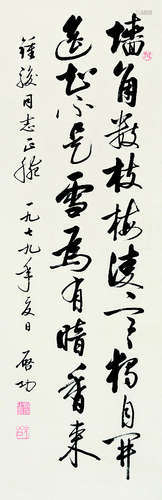 墻角数枝梅凌寒獨自開
遥知不是雪為有暗香来
同志正腕一九七九年夏日启功